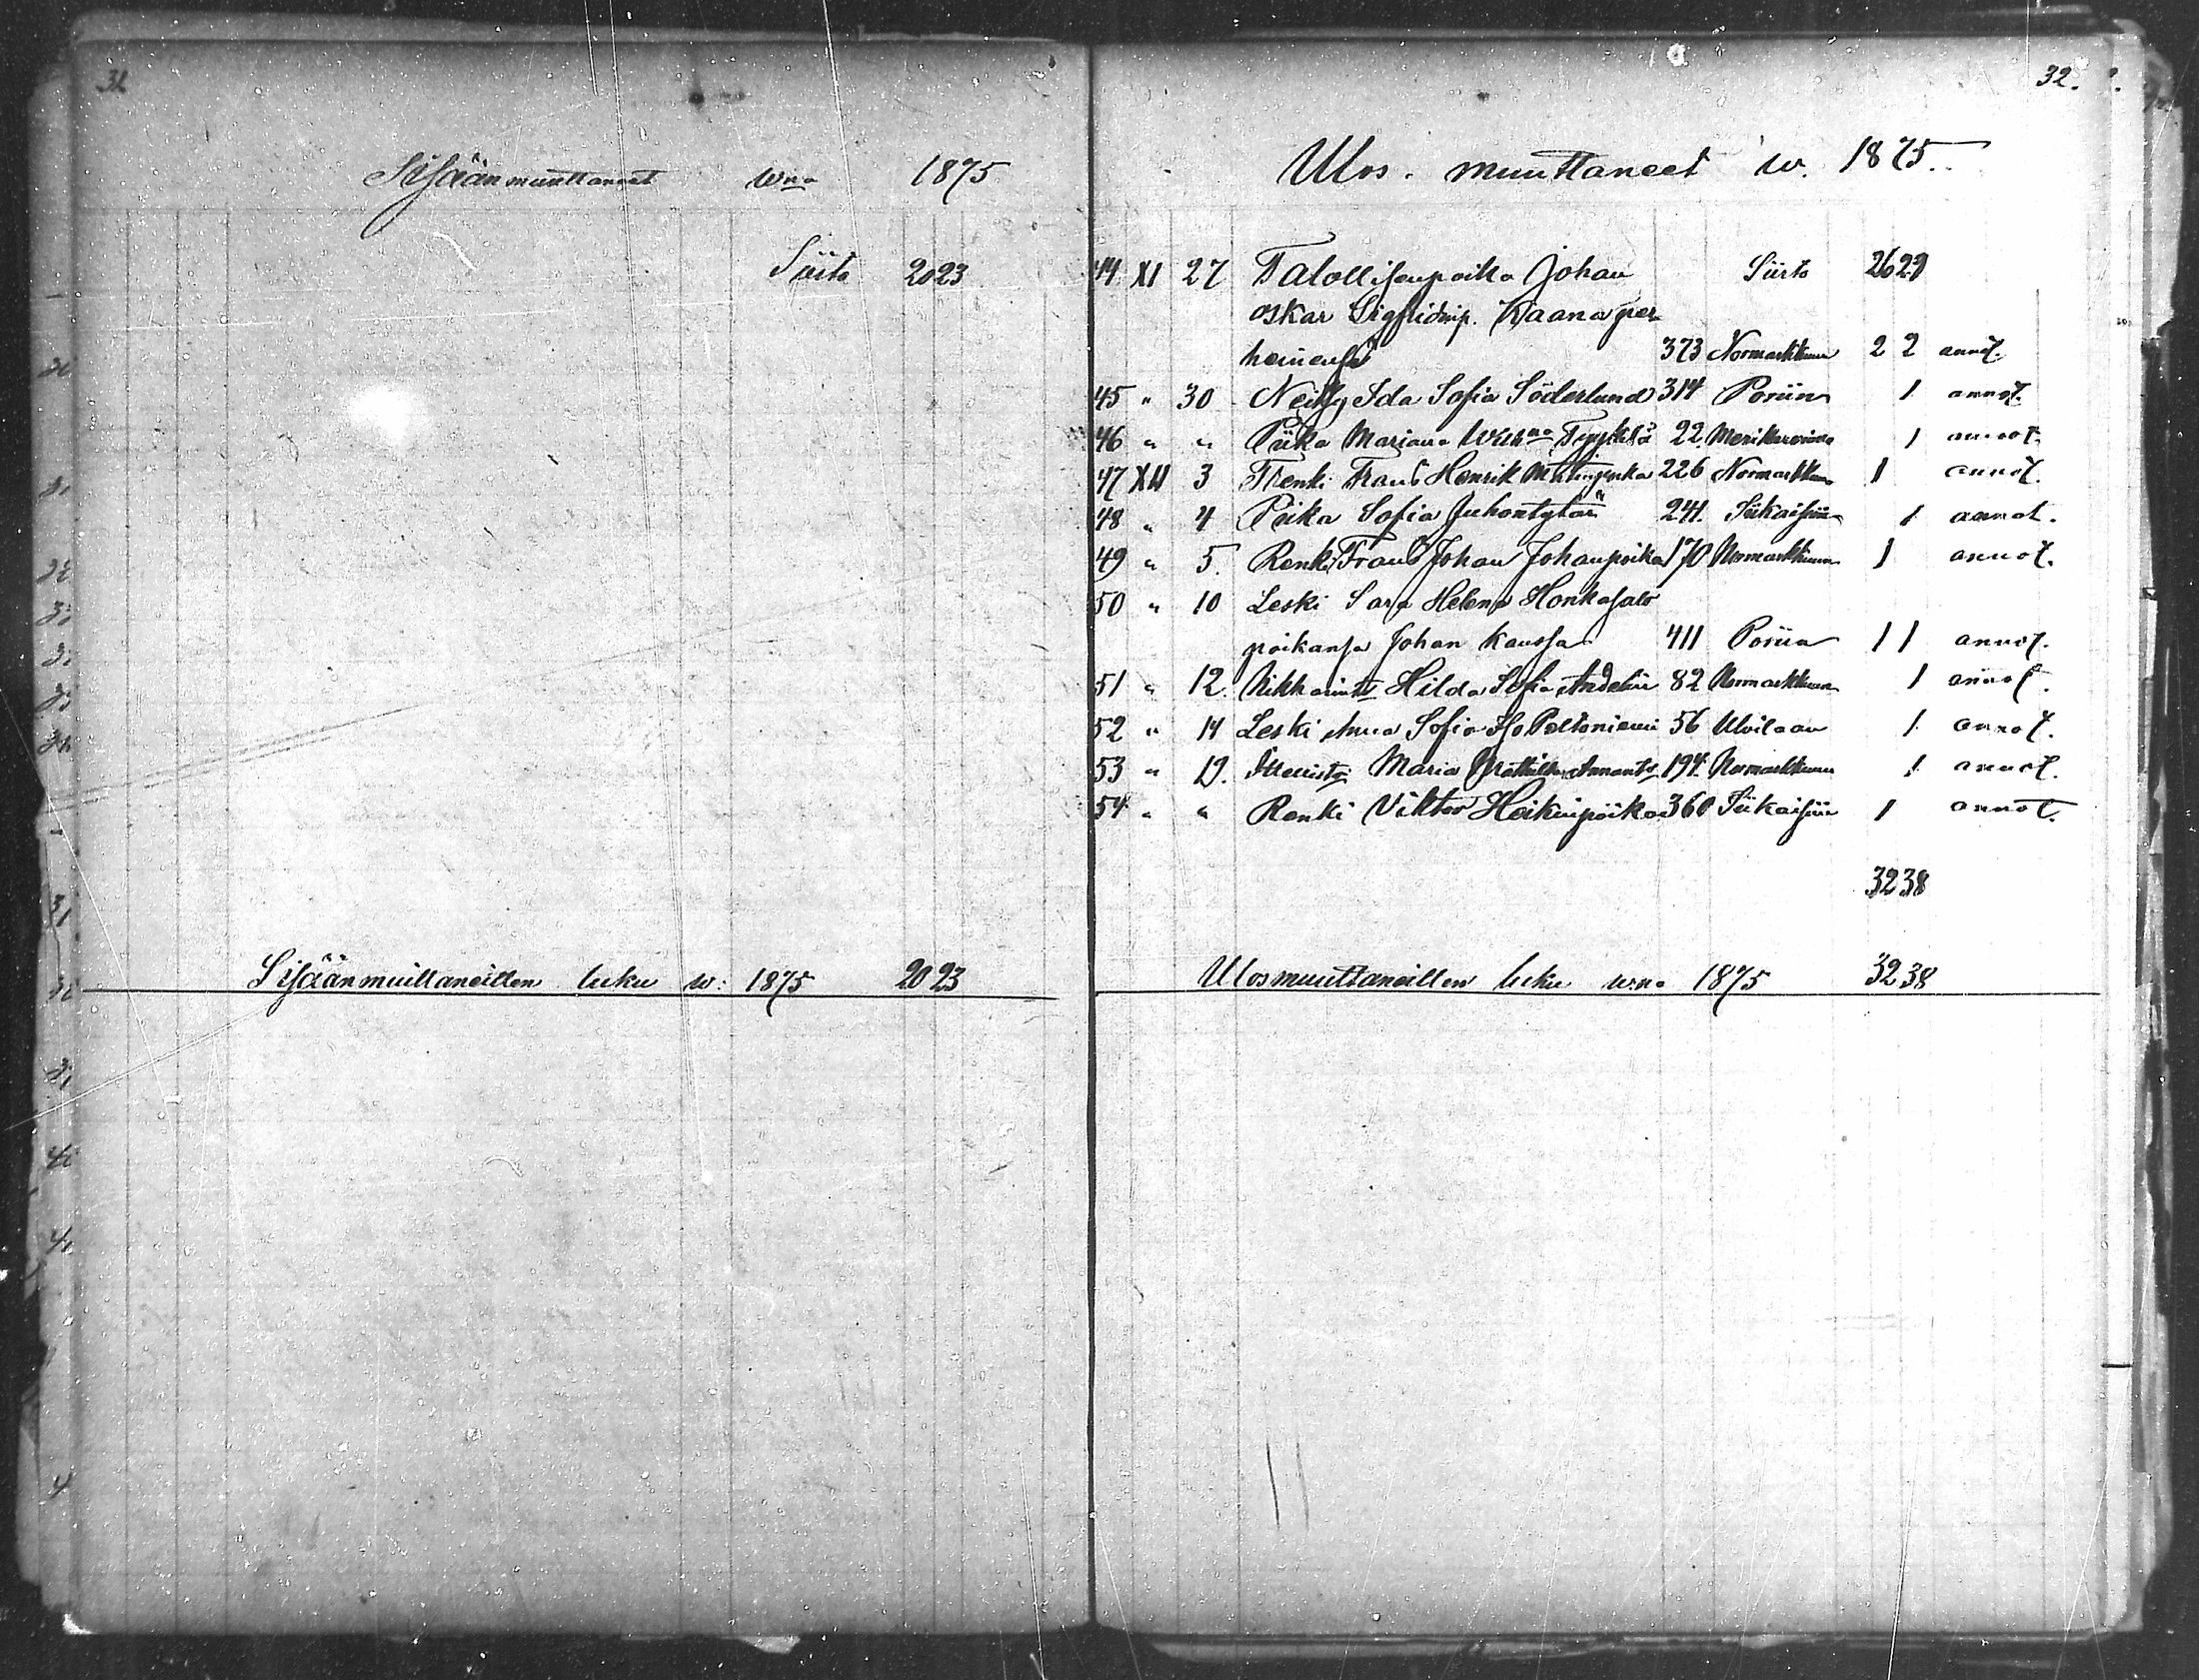 31
Sisäänmuuttaneet wna 1875
Siirto 20 23
Sisäänmuuttaneitten luku w: 1875 20 23
32.
Ulos. muuttaneet w. 1875.
44 XI 27 Talollisenpoika Johan Siirto 26 29
Oskar Sigfridinp. Kaana per
heinensä 373 Normarkkuun 2 2 annot.
45 " 30 Neitsy Ida Sofia Söderlund 314 Poriin 1 annot.
46 " " Piika Mariana 22 Merikarvialle 1 annot.
47 XII 3 Renki Frans Henrik Matinpoika 226 Normarkkuun 1 annot.
48 " 4 Piika Sofia Juhontytär 241. Siikaisiin 1 annot.
49 " 5. Renki Frans Johan Johanpoika 170 Normarkkuun 1 annot.
50 " 10 Leski Sara Helena Honkasalo
poikansa Johan kanssa 411 Poriin 1 1 annot.
51 " 12. Hilda Sofia Andelin 82 Normarkkuun 1 annot.
52 " 14 Leski Anna Sofia Peltoniemi 56 Ulvilaan 1 annot.
53 " 19. Maria 194. Normarkkuun 1 annot.
54 " " Renki Viktor Heikinpoika 360 Siikaisiin 1 annot.
32 38
Ulosmuuttaneitten luku w:na 1875 32 38